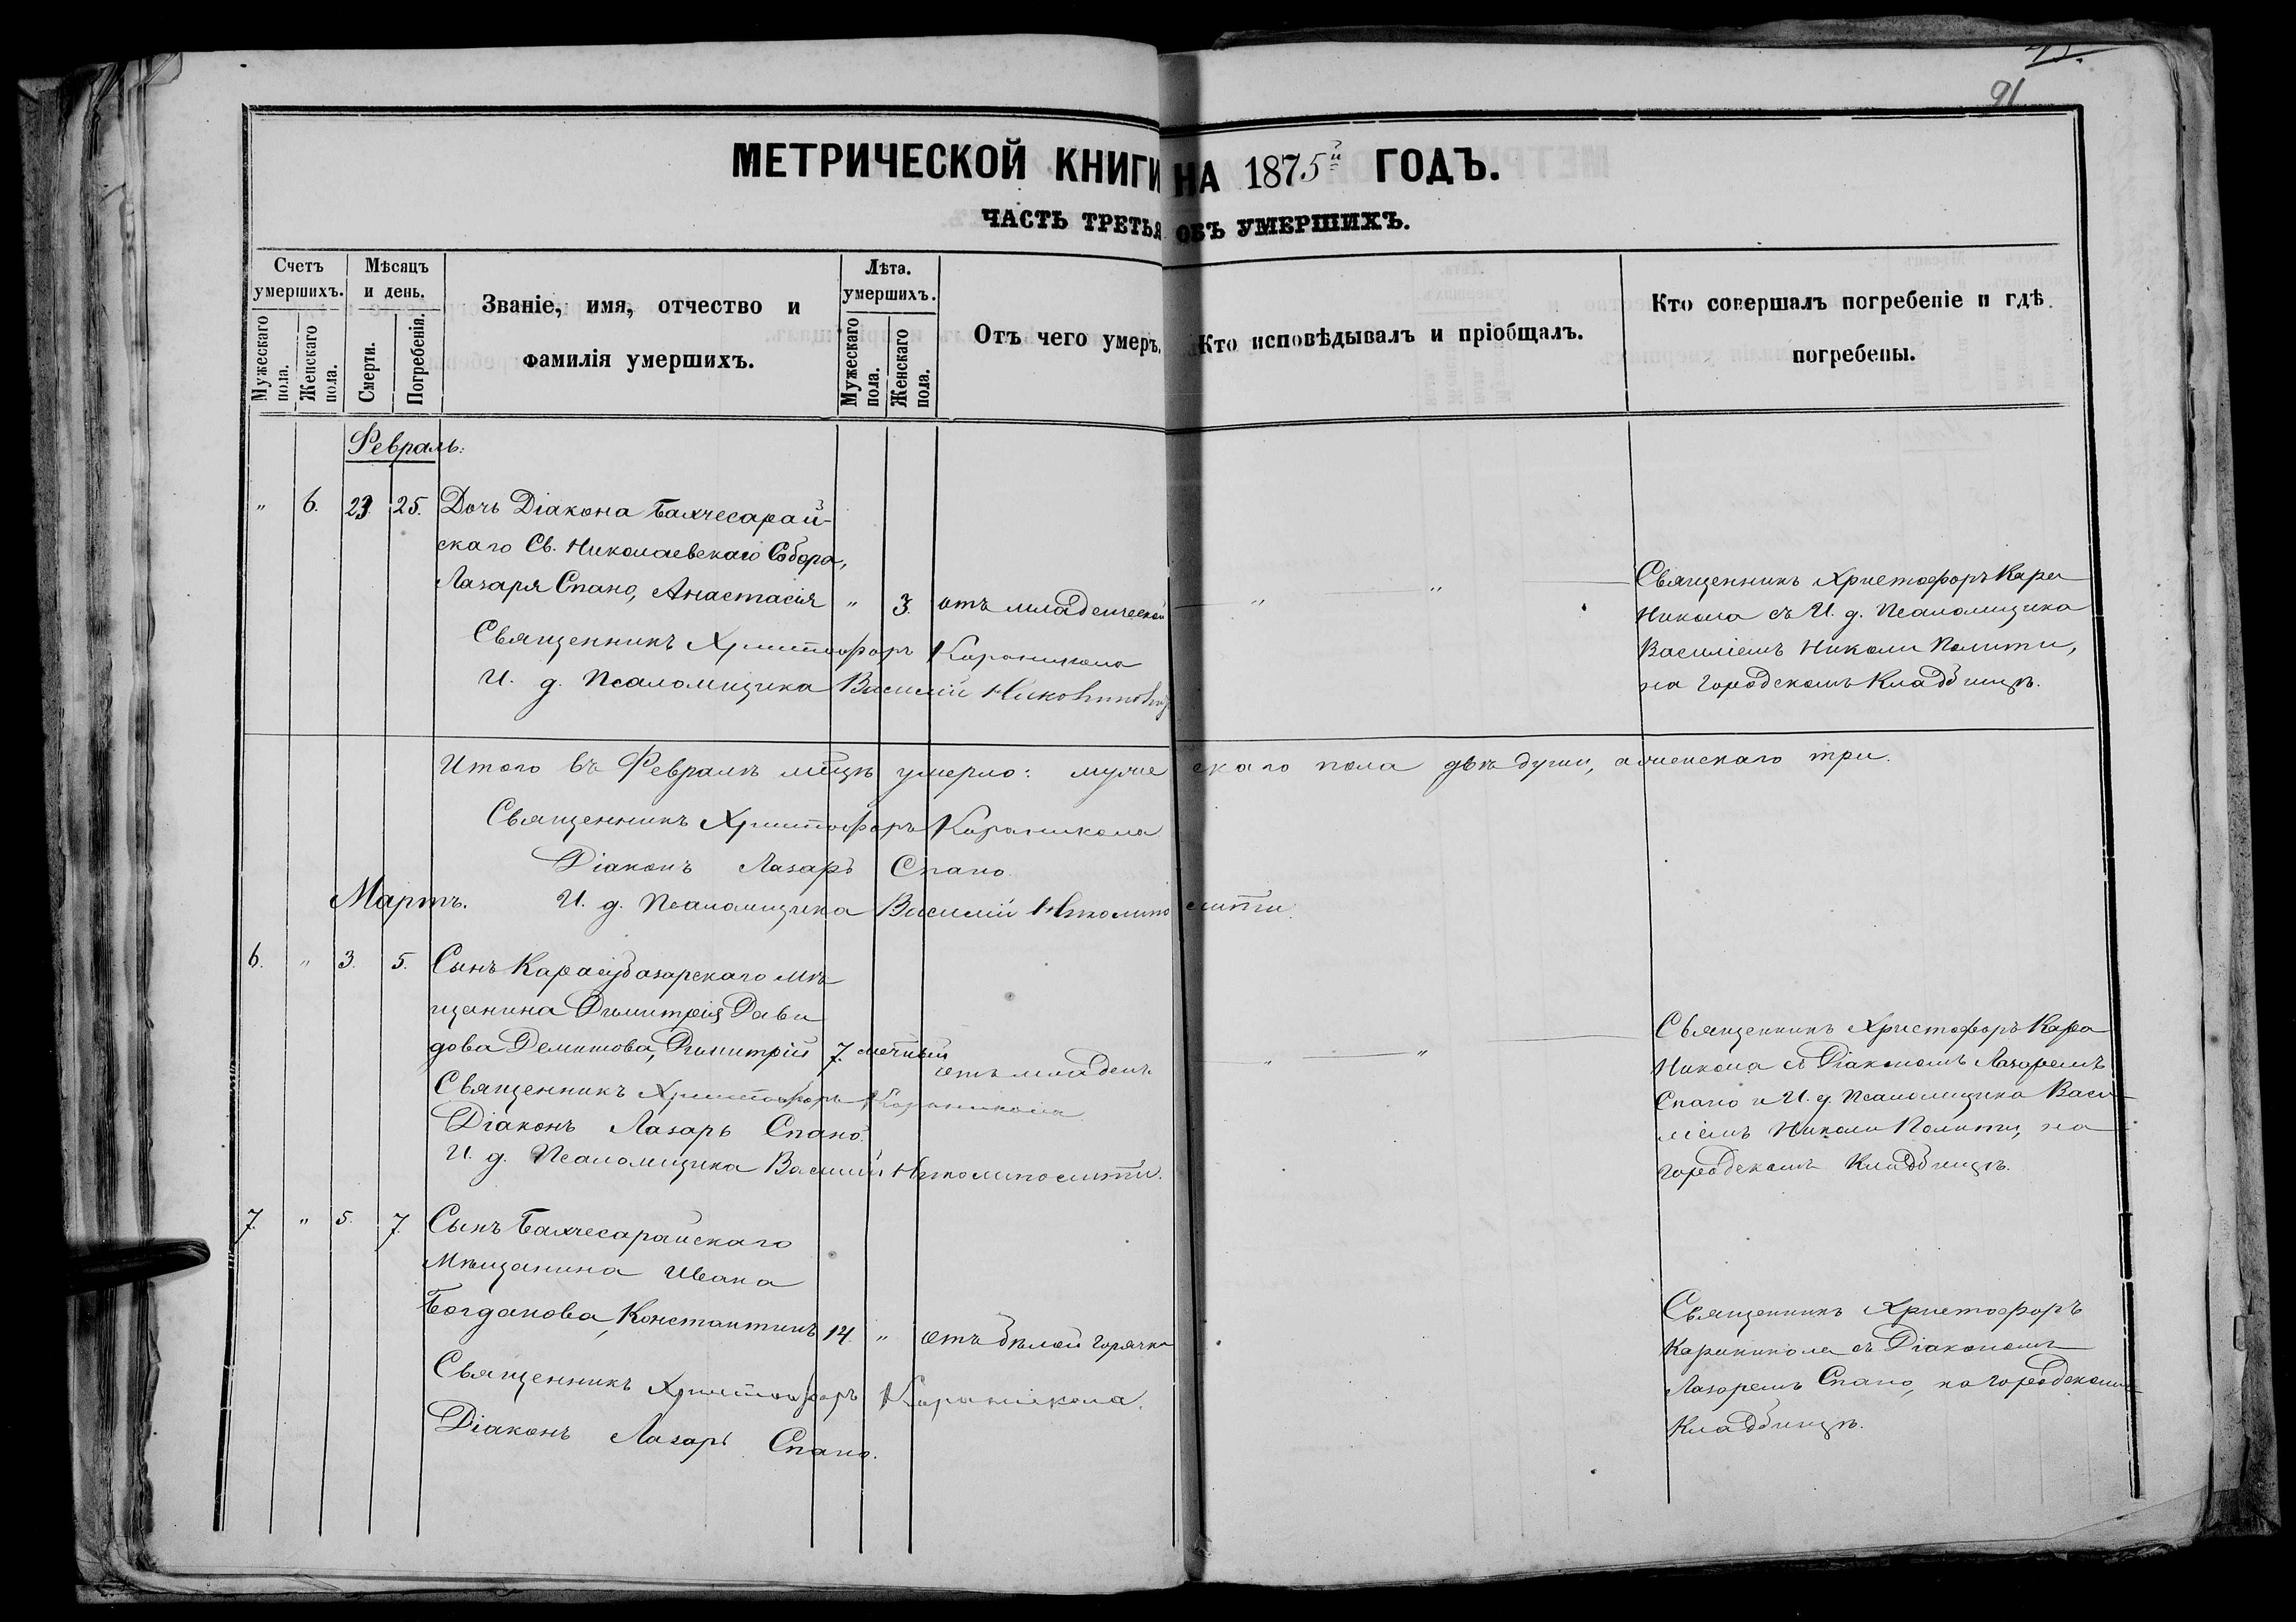 91
МЕТРИЧЕСКОЙ КНИГИ НА 1875й ГОДЪ.
ЧАСТЬ ТРЕТЬЯ ОБЪ УМЕРШИХЪ.
Счетъ умершихъ.
Мужескаго пола.
Женскаго пола.
Мѣсяцъ и день.
Смерти.
Погребенія.
Званіе, имя, отчество и
фамилія умершихъ.
Лѣта. умершихъ.
Мужескаго пола.
Женскаго пола.
Отъ чего умеръ.
Кто исповѣдывалъ и пріобщалъ.
Кто совершалъ погребеніе и гдѣ
погребены.
Февраль.
" 6. 23. 25. Дочь Діакона Бахчесарай-
скаго Св. Николаевскаго Собора,
Лазаря Спано, Анастасія " 3. отъ младенческой " "
Священникъ Христофоръ Кара
Никола съ И. д. Псаломщика
Василіемъ Николи Полити,
на городскомъ Кладбищѣ.
Священникъ Христофоръ Караникола
И. д. Псаломщика Василій
Итого въ Февралѣ мцѣ умерло: мужескаго пола двѣ души, а женскаго три.
Священникъ Христофоръ Караникола
Діаконъ Лазарь Спано
Мартъ.
И. д. Псаломщика Василій
6. " 3. 5. Сынъ Карасубазарскаго мѣ-
щанина Димитрія Дави
дова Димитрій 7. отъ младенч. " "
Священникъ Христофоръ Кара
Никола съ Діакономъ Лазаремъ
Спано и И. д. Псаломщика Васи-
ліемъ Николи Полити, на
городскомъ Кладбищѣ.
Священникъ Христофоръ Караникола
Діаконъ Лазарь Спано.
И. д. Псаломщика Василій
7. " 5. 7. Сынъ Бахчесарайскаго
Мѣщанина Ивана
Богданова, Константинъ 14. " отъ бѣлой горячки
Священникъ Христофоръ
Караникола съ Діакономъ
Лазаремъ Спано, на городскомъ
Кладбищѣ.
Священникъ Христофоръ Караникола.
Діаконъ Лазарь Спано.